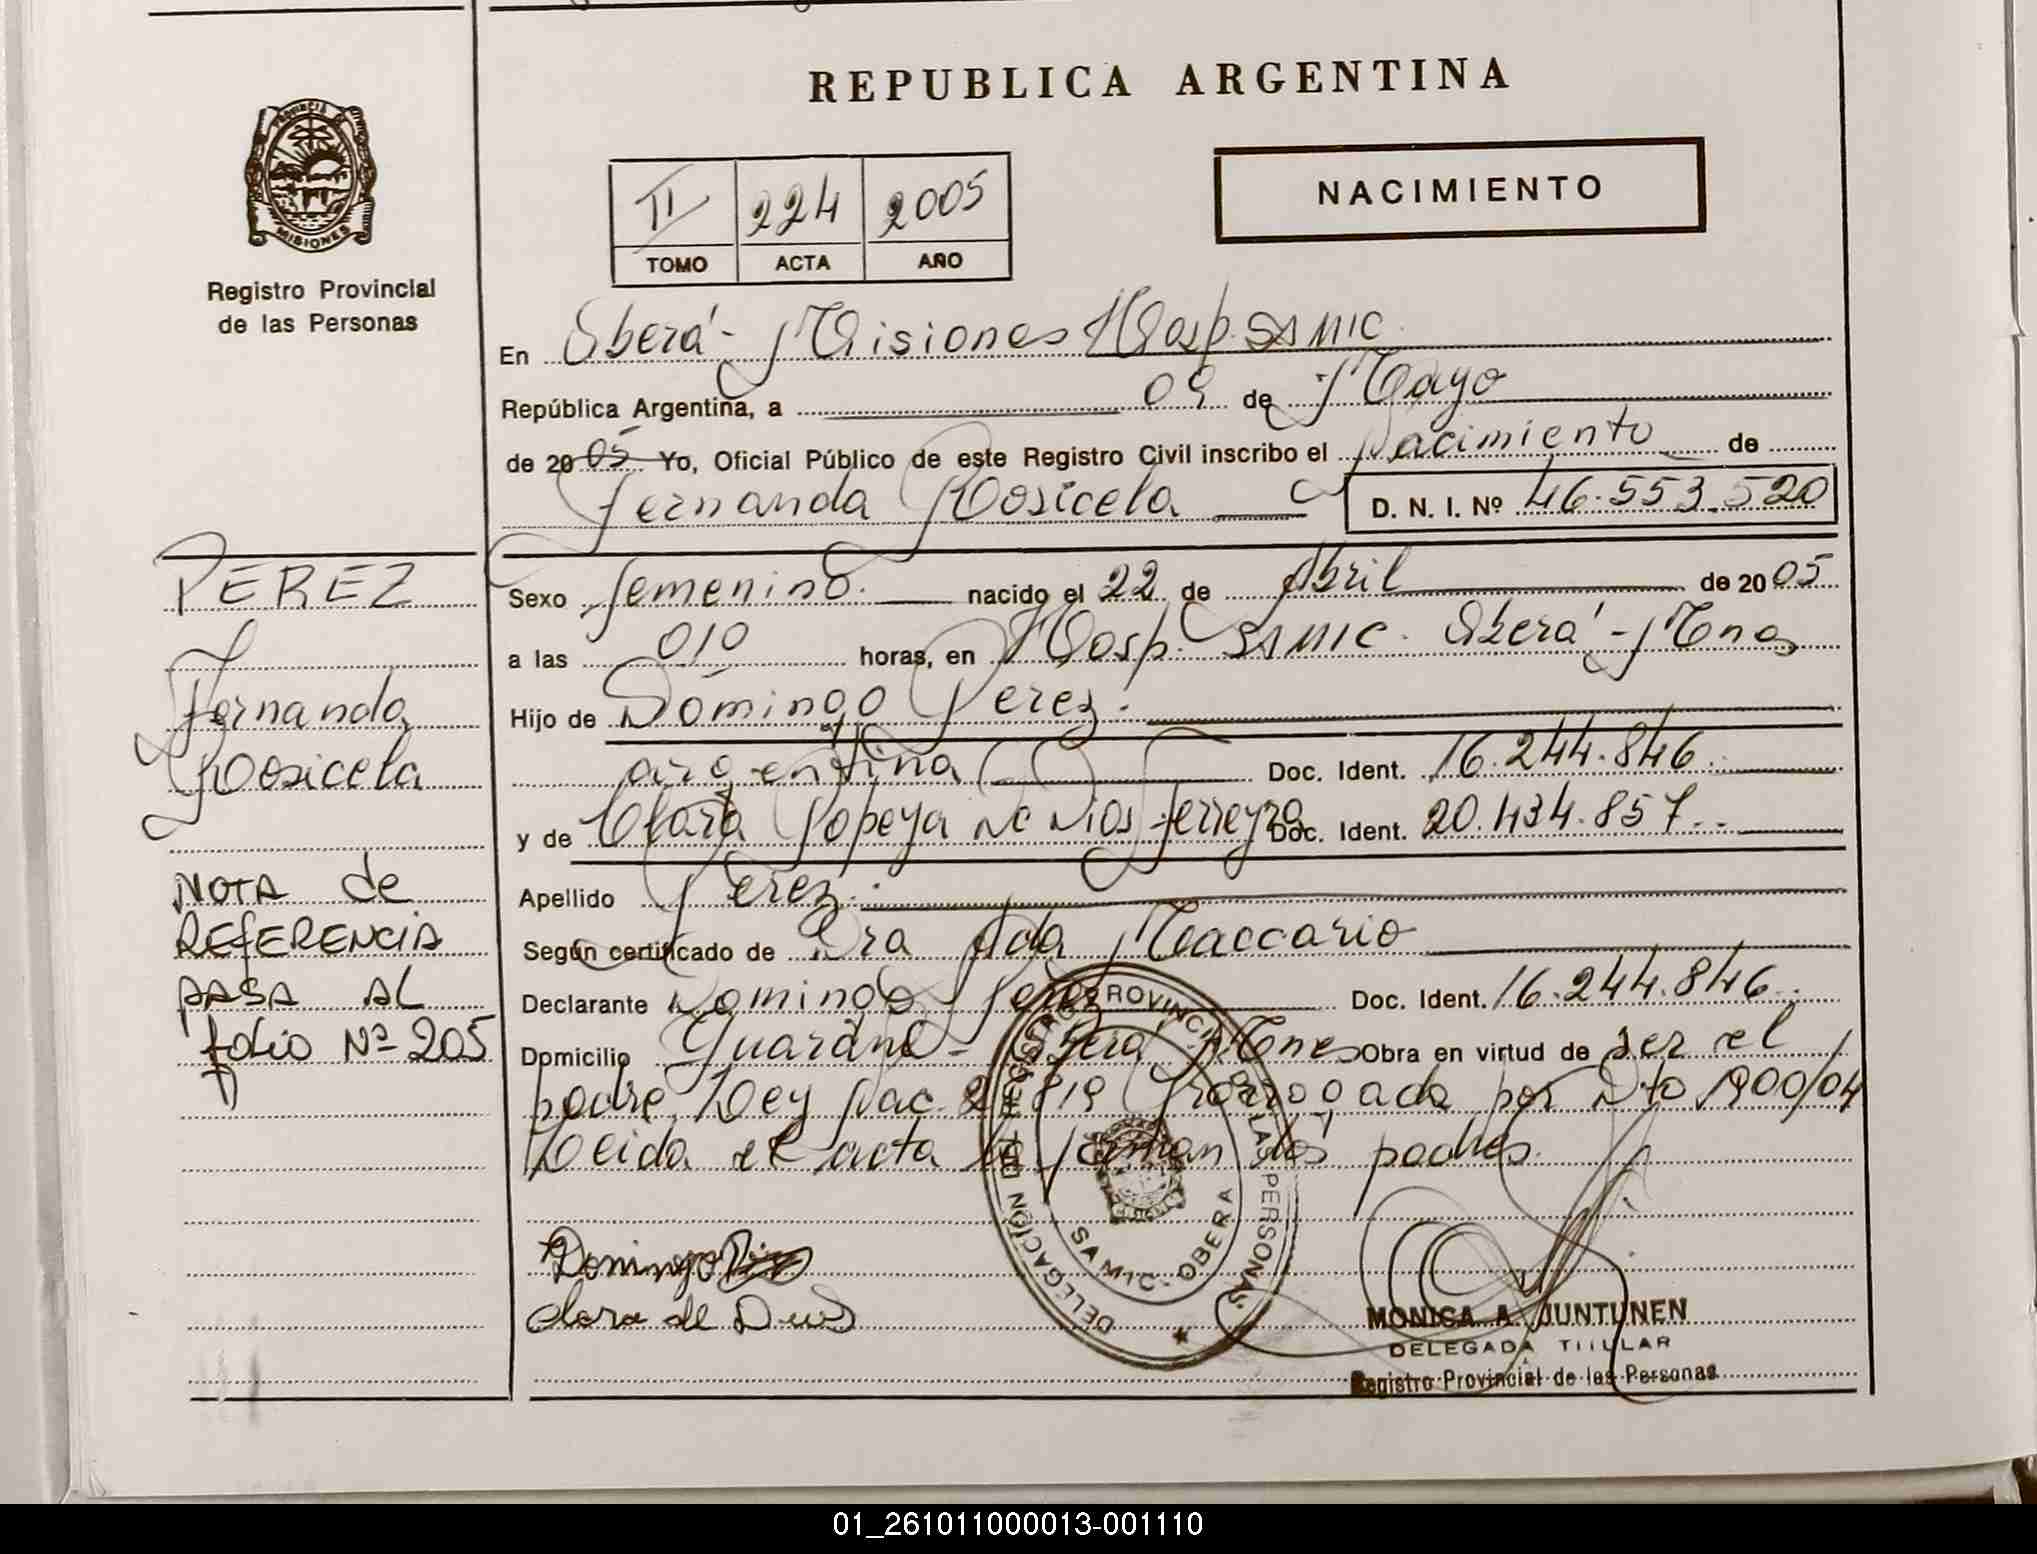 REPUBLICA ARGENTINA
PROVINCIA DE
MISIONES
Registro Provincial
de las Personas
II 224 2005
TOMO ACTA AÑO
NACIMIENTO
En Oberá - Misiones Hosp. SAMIC.
República Argentina, a 09 de Mayo
de 2005 Yo, Oficial Público de este Registro Civil inscribo el Nacimiento de
Fernanda Rosicela D. N. I. Nº 46.553.520
PEREZ
Fernanda
Rosicela
Sexo femenino. nacido el 22 de Abril de 2005
a las 010 horas, en Hosp. SAMIC. Oberá - Mnes
Hijo de Domingo Perez.
argentina Doc. Ident. 16.244.846.
y de Clara Popeya De Dios Ferreyra Doc. Ident. 20.434.857..
Apellido Perez.
Según certificado de Dra Ada Maccario
Declarante Domingo Perez Doc. Ident. 16.244.846.
Domicilio Guaraní - Oberá Mnes Obra en virtud de ser el
padre, Ley Nac. 2 819 Prorrogada por Dto 1900/04
Leida el acta la firman los padres.
NOTA de
REFERENCIA
PASA AL
folio Nº 205
Domingo
clara de Dios
DELEGACIÓN DEL REGISTRO PROVINCIAL DE LAS PERSONAS
SAMIC - OBERA
MONICA A. JUNTUNEN
DELEGADA TITULAR
Registro Provincial de las Personas
01_261011000013-001110